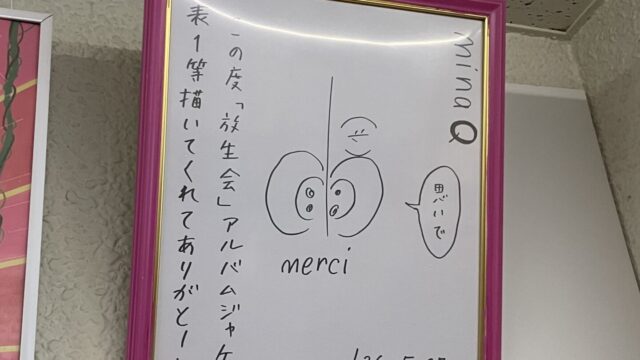 minaQ
思いで
merci
の度「放生会」アルバムジャケ
表1等描いてくれてありがとー